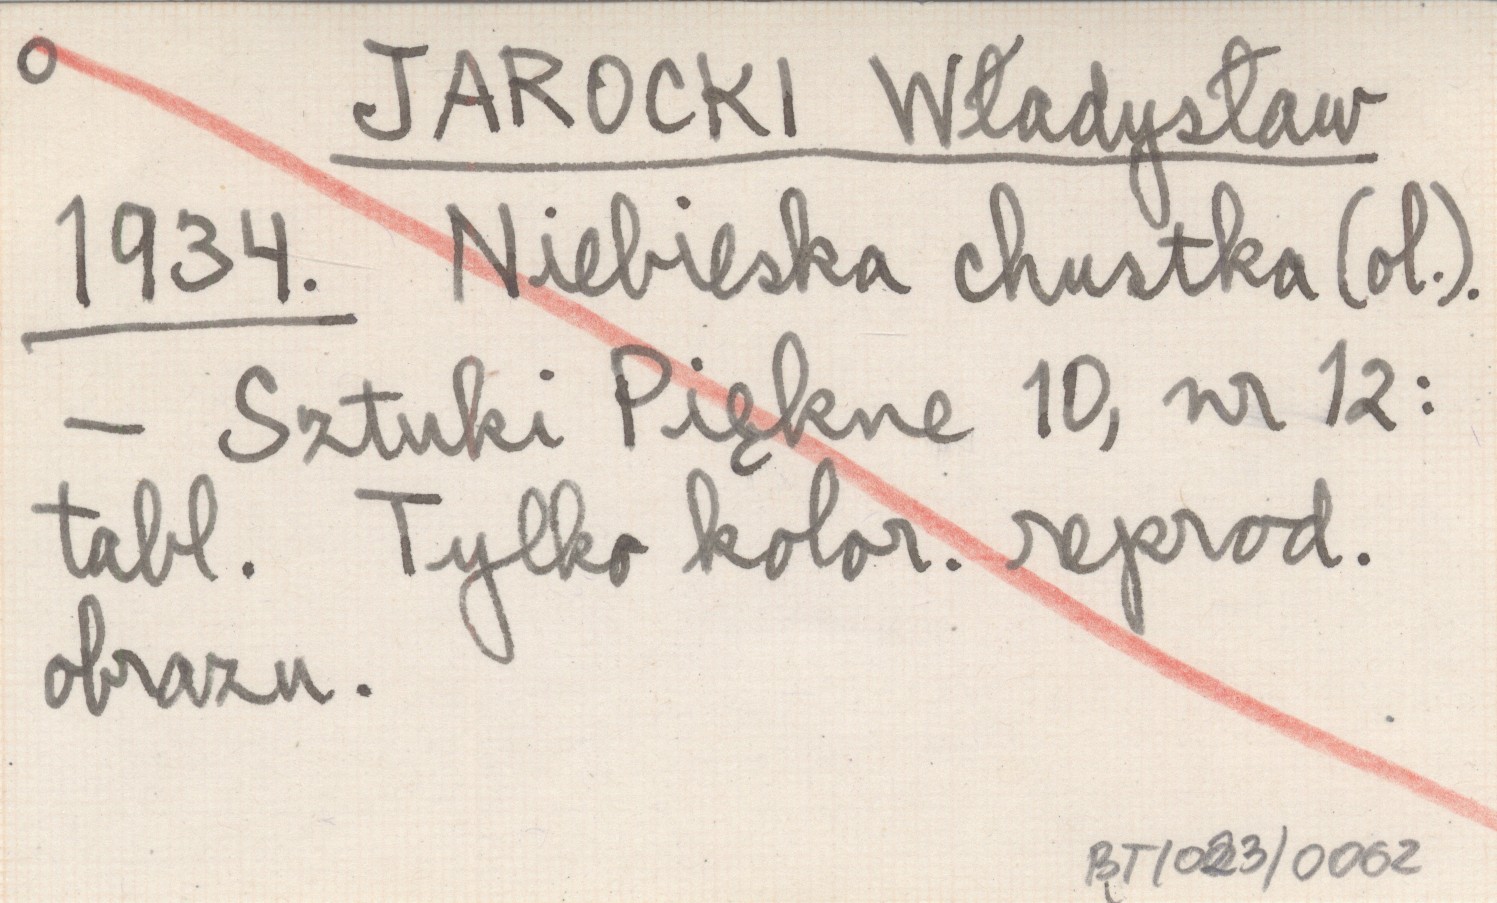 JAROCKI Władysław
1934. Niebieska chustka (ol.).
– Sztuki Piękne 10, nr 12:
tabl. Tylko kolor. reprod.
obrazu.
BT/023/0062